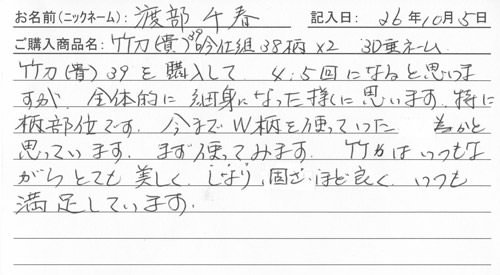 お名前(ニックネーム): 渡部 千春 記入日: 26年10月5日
ご購入商品名: 竹刀(貴)39吟仕組38柄×2 3D垂ネーム
竹刀(貴)39を購入して 4:5回になると思いま
すが、全体的に細身になった様に思います。特に
柄部位です。今までW柄を使っていった 為かと
思っています。まず使ってみます。竹刀はいつもな
がらとても美しく、しなり、固さ、ほど良く、いつも
満足しています。